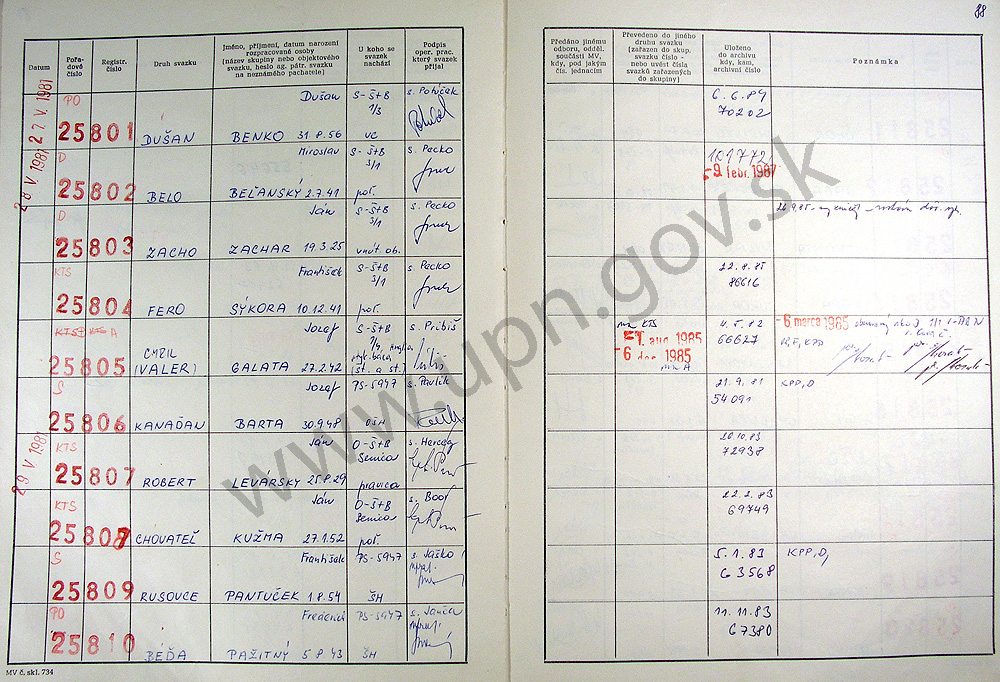 88
Datum
Pořa-
dové
číslo
Registr.
číslo
Druh svazku
Jméno, příjmení, datum narození
rozpracované osoby
(název skupiny nebo objektového
svazku, heslo ag. pátr. svazku
na neznámého pachatele)
U koho se
svazek
nachází
Podpis
oper. prac.
který svazek
přijal
Předáno jinému
odboru, odděl.
součásti MV,
kdy, pod jakým
čís. jednacím
Převedeno do jiného
druhu svazku
(zařazen do skup.
svazku číslo -
nebo uvést čísla
svazků zařazených
do skupiny)
Uloženo
do archivu
kdy, kam,
archivní číslo
Poznámka
27. V. 1981
PO
25801
DUŠAN
Dušan
BENKO 31.8.56
S-Š+B
1/3
VC
s. Potúček
6.6.84
70202
28 V. 1981
D
25802
BELO
Miroslav
BEĽANSKÝ 2.7.41
S-Š+B
3/1
pol.
s. Pecko
101772
-9. febr. 1987
D
25803
ZACHO
Ján
ZACHAR 19.3.25
S-Š+B
3/1
vnút. ob.
s. Pecko
KTS
25804
FERO
František
SÝKORA 10.12.41
S-Š+B
3/1
pol.
s. Pecko
22.8.85
86616
KTS A
25805
CYRIL
(VALER)
Jozef
GALATA 27.2.42
S-Š+B
(st. a st.)
s. Pribiš
na KTS
-1. aug 1985
-6 dec. 1985
na A
4.5.82
66627
-6 marca 1985
S
25806
KANAĎAN
Jozef
BARTA 30.9.48
PS-5947
OŠH
s. Pavlík
21.9.81
54091
KPP,O
29 V 1981
KTS
25807
ROBERT
Ján
LEVÁRSKY 25.8.29
O-Š+B
Senica
pravica
s. Herceg
20.10.83
72938
KTS
25808
CHOVATEĽ
Ján
KUŽMA 27.1.52
O-Š+B
Senica
pol.
s. Boor
22.2.83
69749
S
25809
RUSOVCE
František
PANTUČEK 1.8.54
PS-5947
ŠH
s. Jaško
5.1.83
63568
KPP,O,
PO
25810
BEĎA
PAŽITNÝ 5.8.43
PS-5947
ŠH
11.11.83
67380
MV č. skl. 734
www.upn.gov.sk